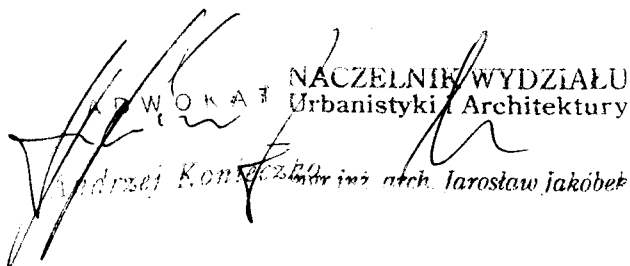 ADWOKAT
Andrzej Konieczko
NACZELNIK WYDZIAŁU
Urbanistyki i Architektury
mgr inż. arch. Jarosław Jakóbek